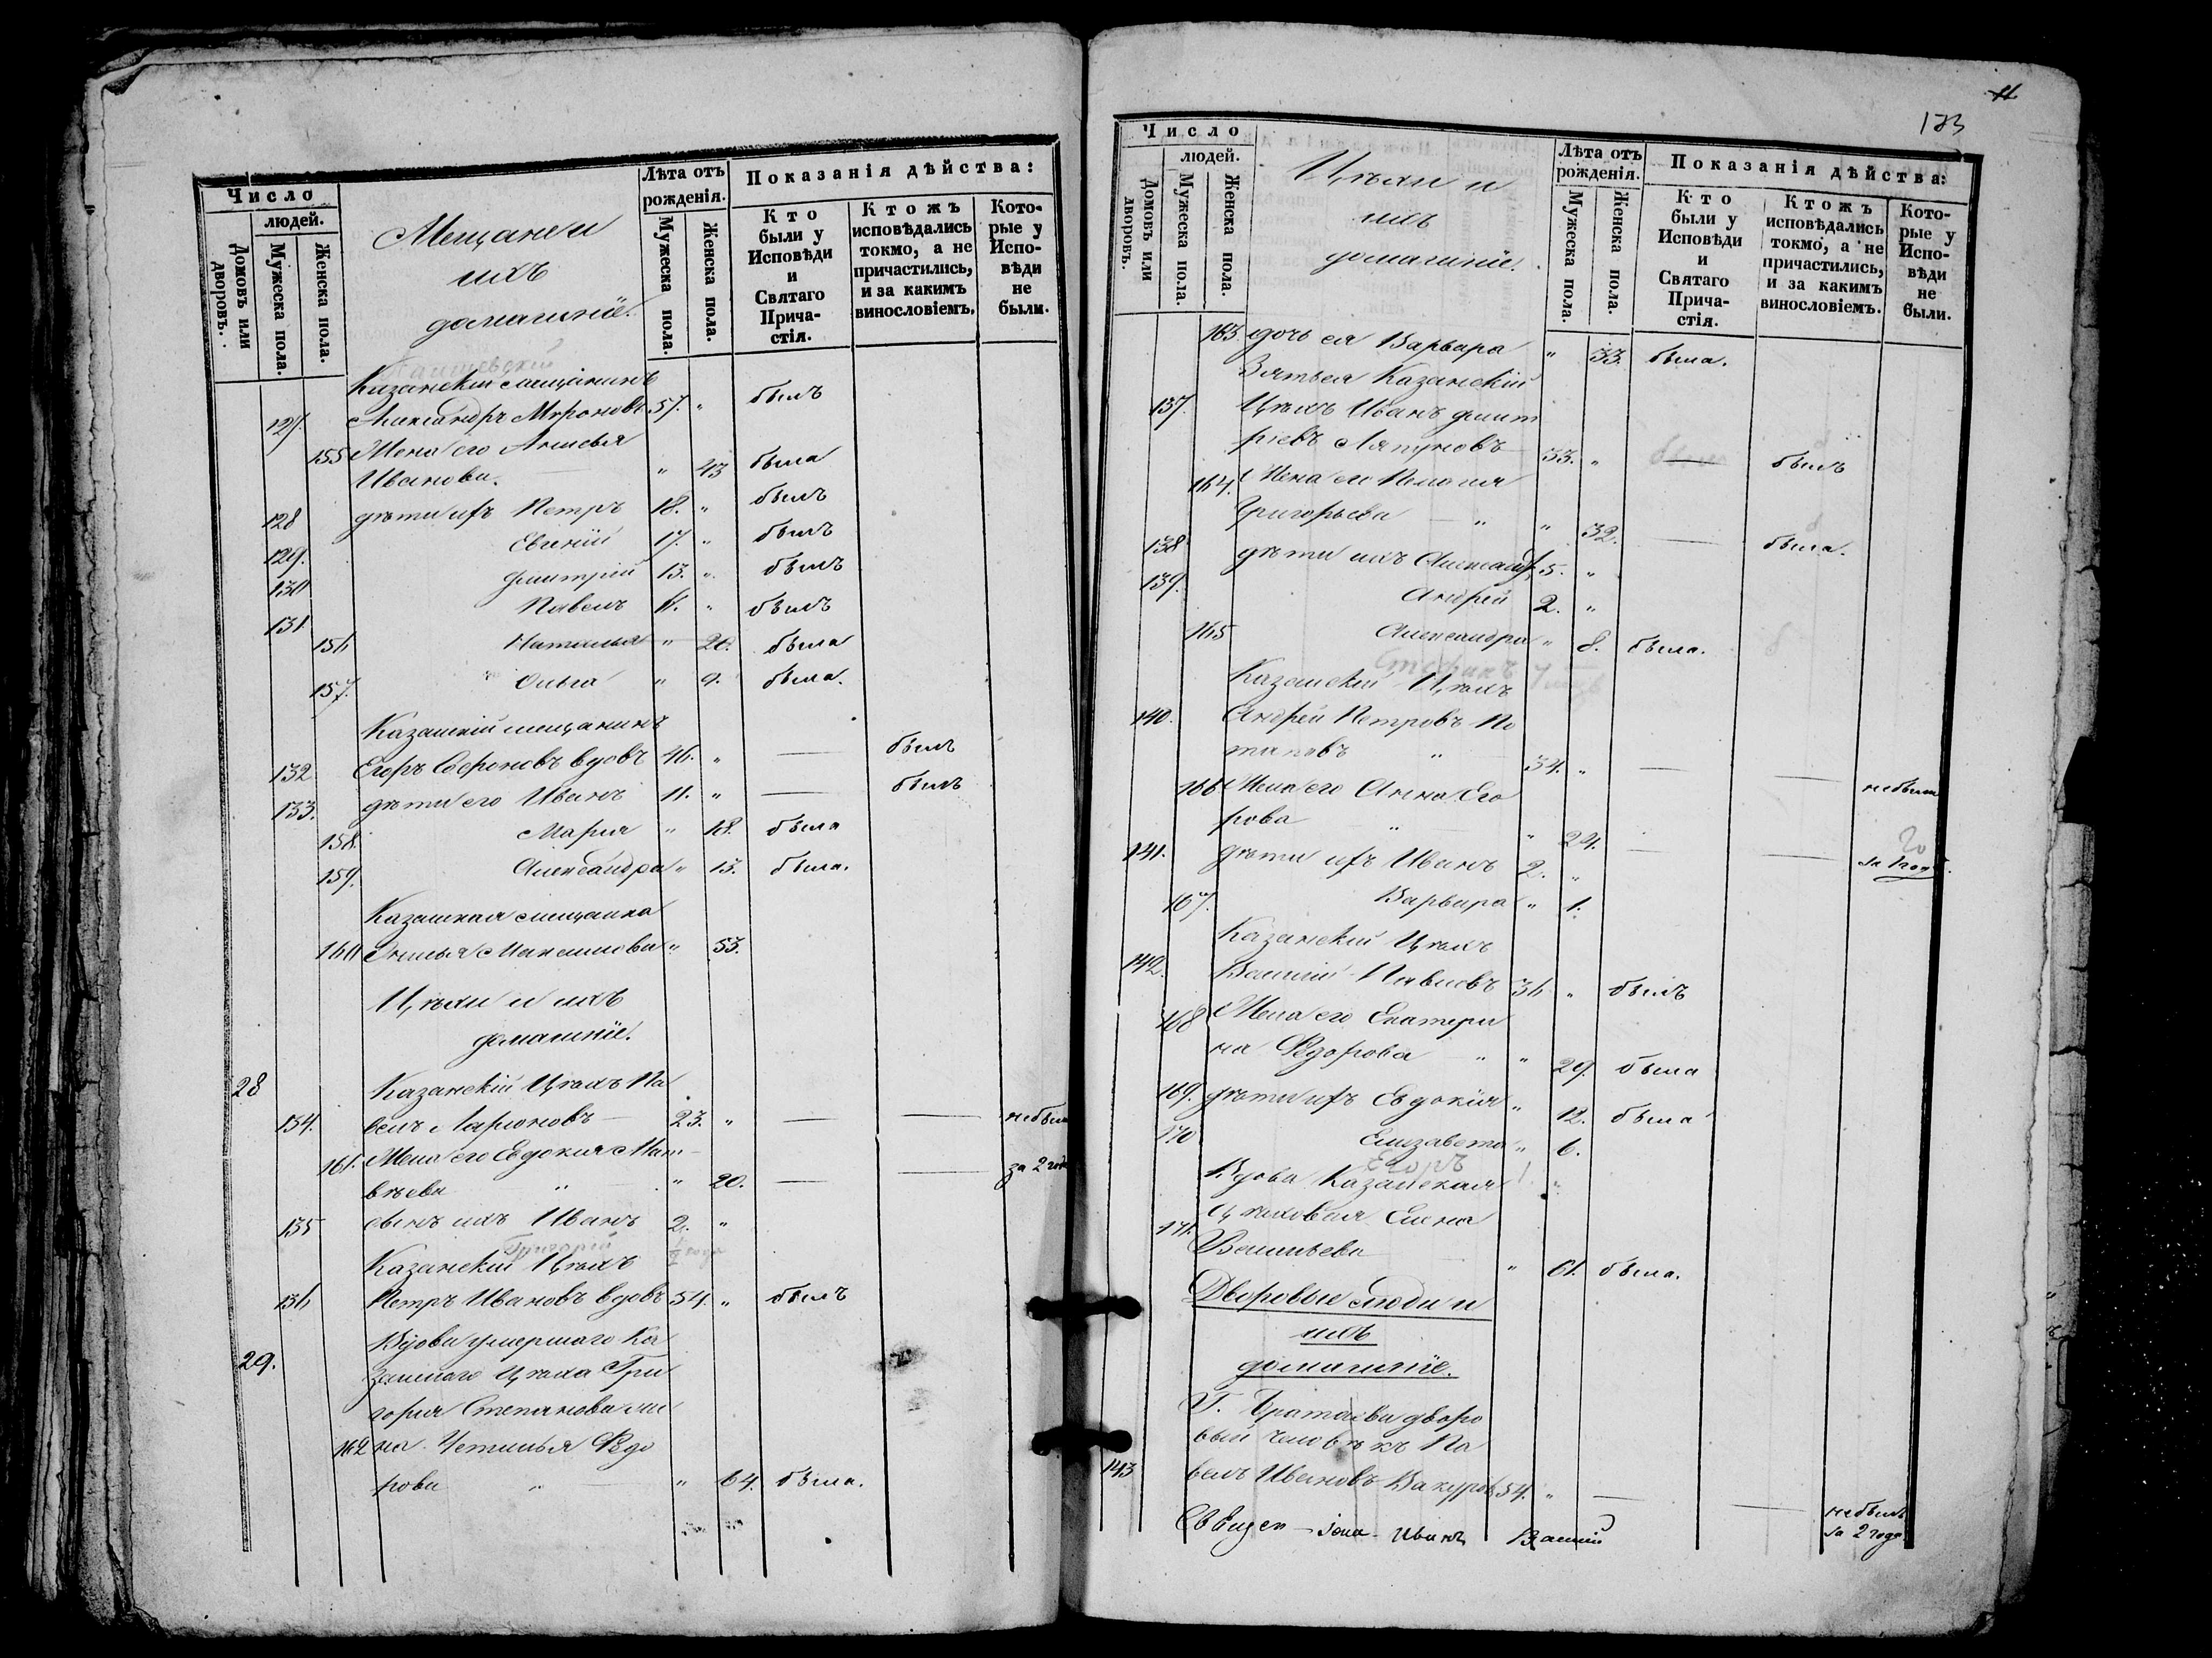 Число
людей.
Домовъ или дворовъ.
Мужеска пола.
Женска пола.
Мещане и
ихъ
домашніе.
Лѣта отъ рожденія.
Мужеска пола.
Женска пола.
Показанія дѣйства:
Кто были у Исповѣди и Святаго Причастія.
Ктожъ исповѣдались токмо, а не причастились, и за какимъ винословіемъ.
Которые у Исповѣди не были.
Казанскій мещанинъ
127. Александръ Мироновъ 57. " былъ
155 Жена его Анисья
Иванова. " 43 была
128 дѣти ихъ Петръ 18. " былъ
129. Евгеній 17. " былъ
130 Дмитрій 13. " былъ
131 Павелъ " былъ
156 Наталья " 20. была
157. Ольга " 9. была.
Казанскій мещанинъ
132 Егоръ Софроновъ вдовъ 46. " — былъ
133. дѣти его Иванъ 11. " — былъ
158. Марія " 18. была
159. Александра " 13. была.
Казанская мещанка
160 Максимова " 53.
Цѣхи и ихъ
домашніе.
28 Казанскій Цѣхъ Па
134. велъ Ларіоновъ — 23. " — — небыли
161. Жена его Евдокия Мат
вѣева " " 20. — — за 2 года
135 сынъ ихъ Иванъ 2. "
Григорій
Казанскій Цѣхъ
136 Петръ Ивановъ вдовъ 54. " былъ
29. Вдова умершаго Ка
занскаго Цѣха Гри
горія Степанова
162 Устинья Ѳедо
рова " " 64. была.
11
173
Число
людей.
Домовъ или дворовъ.
Мужеска пола.
Женска пола.
Цѣхи и
ихъ
домашніе.
Лѣта отъ рожденія.
Мужеска пола.
Женска пола.
Показанія дѣйства:
Кто были у Исповѣди и Святаго Причастія.
Ктожъ исповѣдались токмо, а не причастились, и за какимъ винословіемъ.
Которые у Исповѣди не были.
163. дочь ея Варвара " 33. была.
Зять ея Казанскій
137. Цѣхъ Иванъ Дмит
ріевъ Ляпуновъ 33. " — былъ
164. Жена его Пелагия
Григорьева — " " 32. — была.
138 дѣти ихъ Александр 5. "
139. Андрей 2. "
165 Александра " 8. была.
Стефанъ
Казанскій Цѣхъ
140. Андрей Петровъ По
таповъ " 34. " — — небыли
166 Жена его Анна Его
рова " " 24. — — за 1 годъ.
141. дѣти ихъ Иванъ 2. "
167. Варвара " 1.
Казанскій Цѣхъ
142. Василій Павловъ 36 " былъ
168 Жена его Екатери
на Ѳедорова " " 29. была
169. дѣти ихъ Евдокія " 12. была
170 Елизавета " 6.
Егоръ
Вдова Казанская
171. Цѣховая Елена
Васильева " 61. была.
Дворовые люди и
ихъ
домашніе.
Г. дворо
вый человѣкъ Па
143 велъ Ивановъ 54. " — — небылъ
за 2 года
Иванъ Василій